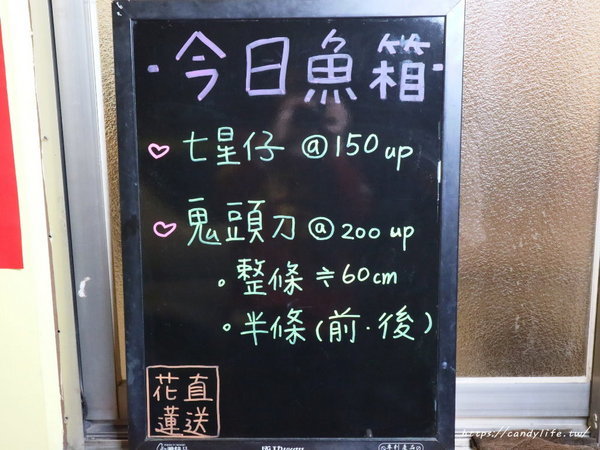 ·今日魚箱·
♡ 七星仔 @150 up
♡ 鬼頭刀 @200 up
• 整條 ≒60cm
• 半條(前·後)
花直
蓮送
https://candylife.tw/